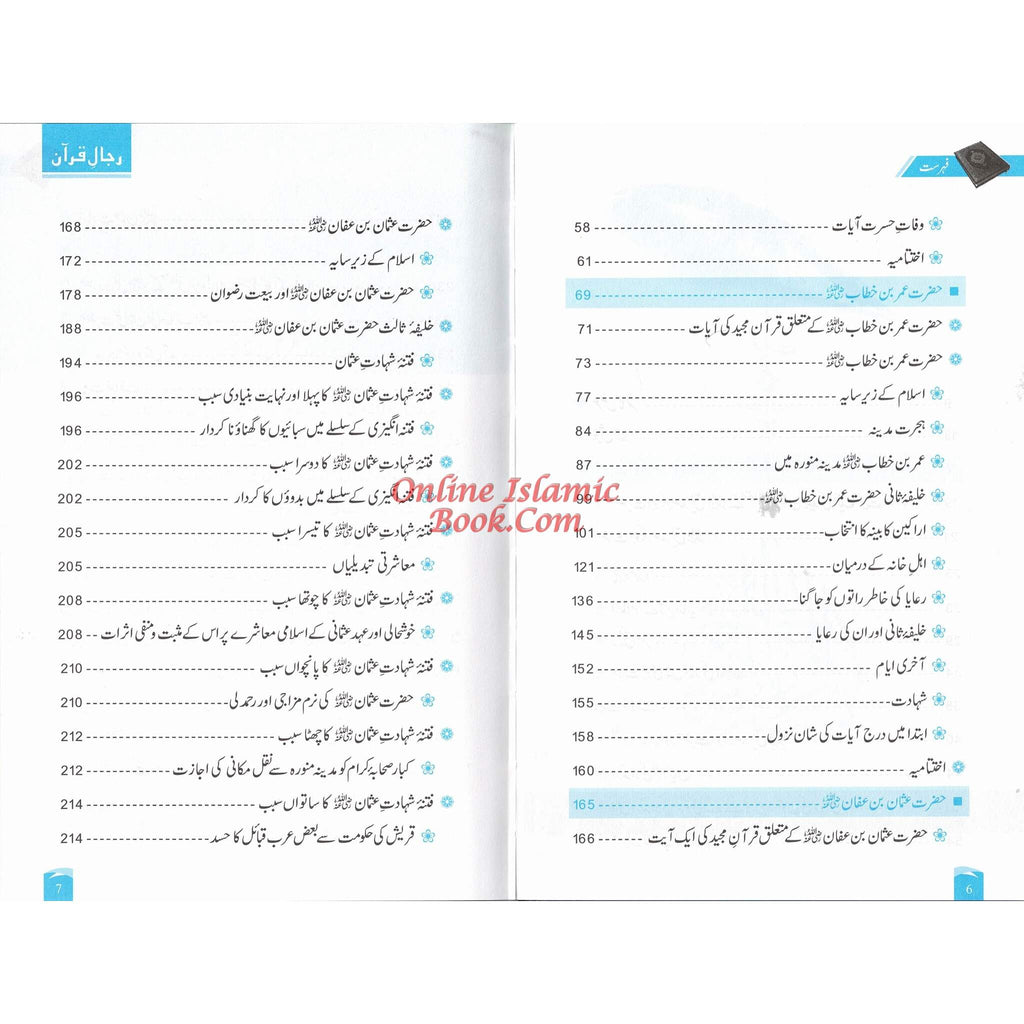 فہرست
وفاتِ حسرت آیات 58
اختتامیہ 61
حضرت عمر بن خطاب رضی اللہ عنہ 69
حضرت عمر بن خطاب رضی اللہ عنہ کے متعلق قرآن مجید کی آیات 71
حضرت عمر بن خطاب رضی اللہ عنہ 73
اسلام کے زیر سایہ 77
ہجرت مدینہ 84
عمر بن خطاب رضی اللہ عنہ مدینہ منورہ میں 87
خلیفۂ ثانی حضرت عمر بن خطاب رضی اللہ عنہ 99
اراکین کابینہ کا انتخاب 101
اہلِ خانہ کے درمیان 121
رعایا کی خاطر راتوں کو جاگنا 136
خلیفۂ ثانی اور ان کی رعایا 145
آخری ایام 152
شہادت 155
ابتدا میں درج آیات کی شان نزول 158
اختتامیہ 160
حضرت عثمان بن عفان رضی اللہ عنہ 165
حضرت عثمان بن عفان رضی اللہ عنہ کے متعلق قرآنِ مجید کی ایک آیت 166
6
رجالِ قرآن
حضرت عثمان بن عفان رضی اللہ عنہ 168
اسلام کے زیر سایہ 172
حضرت عثمان بن عفان رضی اللہ عنہ اور بیعت رضوان 178
خلیفۂ ثالث حضرت عثمان بن عفان رضی اللہ عنہ 188
فتنۂ شہادتِ عثمان 194
فتنۂ شہادتِ عثمان رضی اللہ عنہ کا پہلا اور نہایت بنیادی سبب 196
فتنہ انگیزی کے سلسلے میں سبائیوں کا گھناؤنا کردار 196
فتنۂ شہادتِ عثمان رضی اللہ عنہ کا دوسرا سبب 202
فتنہ انگیزی کے سلسلے میں بدوؤں کا کردار 202
فتنۂ شہادتِ عثمان رضی اللہ عنہ کا تیسرا سبب 205
معاشرتی تبدیلیاں 205
فتنۂ شہادتِ عثمان رضی اللہ عنہ کا چوتھا سبب 208
خوشحالی اور عہد عثمانی کے اسلامی معاشرے پر اس کے مثبت و منفی اثرات 208
فتنۂ شہادتِ عثمان رضی اللہ عنہ کا پانچواں سبب 210
حضرت عثمان رضی اللہ عنہ کی نرم مزاجی اور رحمدلی 210
فتنۂ شہادتِ عثمان رضی اللہ عنہ کا چھٹا سبب 212
کبار صحابۂ کرام کو مدینہ منورہ سے نقل مکانی کی اجازت 212
فتنۂ شہادتِ عثمان رضی اللہ عنہ کا ساتواں سبب 214
قریش کی حکومت سے بعض عرب قبائل کا حسد 214
7
Online Islamic
Book.Com